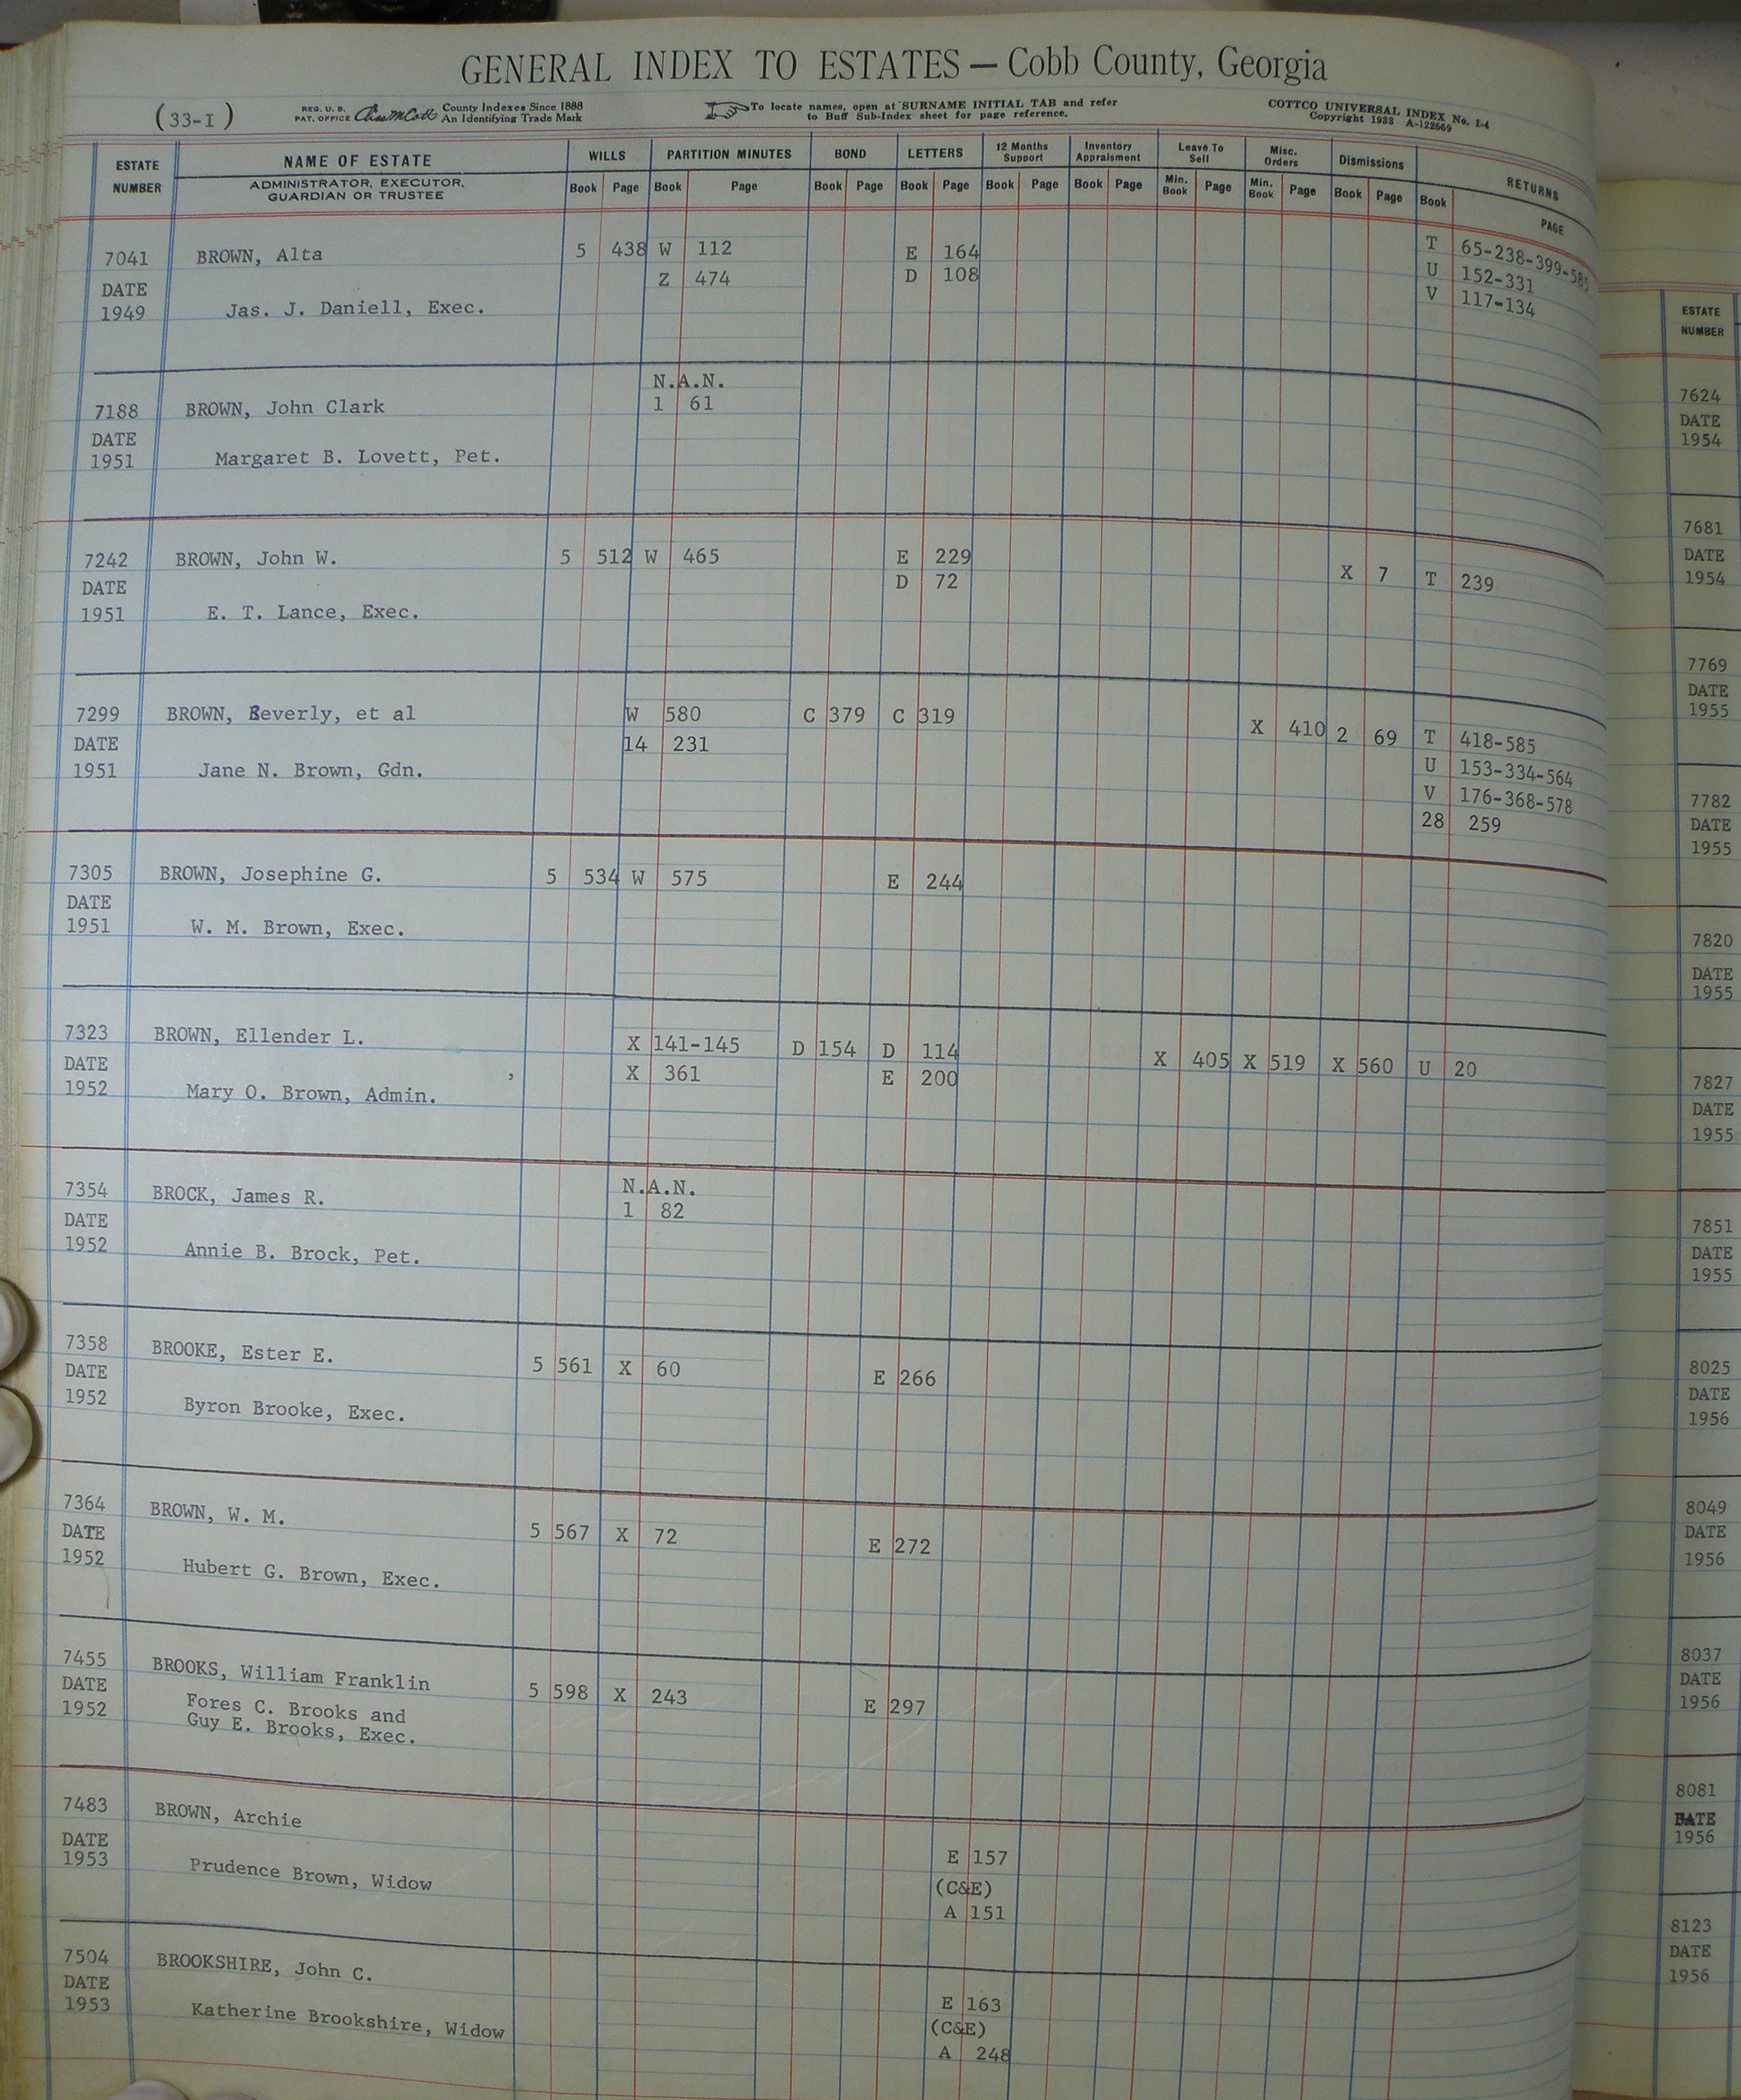 GENERAL INDEX TO ESTATES — Cobb County, Georgia
(33-I)
REG. U. S. PAT. OFFICE County Indexes Since 1888 An Identifying Trade Mark
To locate names, open at SURNAME INITIAL TAB and refer to Buff Sub-Index sheet for page reference.
COTTCO UNIVERSAL INDEX No. 1-4
Copyright 1938 A-122669
ESTATE NUMBER NAME OF ESTATE WILLS PARTITION MINUTES BOND LETTERS 12 Months Support Inventory Appraisment Leave To Sell Misc. Orders Dismissions RETURNS
ADMINISTRATOR, EXECUTOR, GUARDIAN OR TRUSTEE Book Page Book Page Book Page Book Page Book Page Book Page Min. Book Page Min. Book Page Book Page Book PAGE
7041 BROWN, Alta 5 438 W 112 E 164 T 65-238-399-585
DATE Z 474 D 108 U 152-331
1949 Jas. J. Daniell, Exec. V 117-134
N.A.N.
7188 BROWN, John Clark 1 61
DATE
1951 Margaret B. Lovett, Pet.
7242 BROWN, John W. 5 512 W 465 E 229 X 7 T 239
DATE D 72
1951 E. T. Lance, Exec.
7299 BROWN, Beverly, et al W 580 C 379 C 319 X 410 2 69 T 418-585
DATE 14 231 U 153-334-564
1951 Jane N. Brown, Gdn. V 176-368-578
28 259
7305 BROWN, Josephine G. 5 534 W 575 E 244
DATE
1951 W. M. Brown, Exec.
7323 BROWN, Ellender L. X 141-145 D 154 D 114 X 405 X 519 X 560 U 20
DATE X 361 E 200
1952 Mary O. Brown, Admin.
7354 BROCK, James R. N.A.N.
DATE 1 82
1952 Annie B. Brock, Pet.
7358 BROOKE, Ester E. 5 561 X 60 E 266
DATE
1952 Byron Brooke, Exec.
7364 BROWN, W. M. 5 567 X 72 E 272
DATE
1952 Hubert G. Brown, Exec.
7455 BROOKS, William Franklin 5 598 X 243 E 297
DATE Fores C. Brooks and
1952 Guy E. Brooks, Exec.
7483 BROWN, Archie
DATE E 157
1953 Prudence Brown, Widow (C&E)
A 151
7504 BROOKSHIRE, John C.
DATE E 163
1953 Katherine Brookshire, Widow (C&E)
A 248
ESTATE
NUMBER
7624
DATE
1954
7681
DATE
1954
7769
DATE
1955
7782
DATE
1955
7820
DATE
1955
7827
DATE
1955
7851
DATE
1955
8025
DATE
1956
8049
DATE
1956
8037
DATE
1956
8081
DATE
1956
8123
DATE
1956